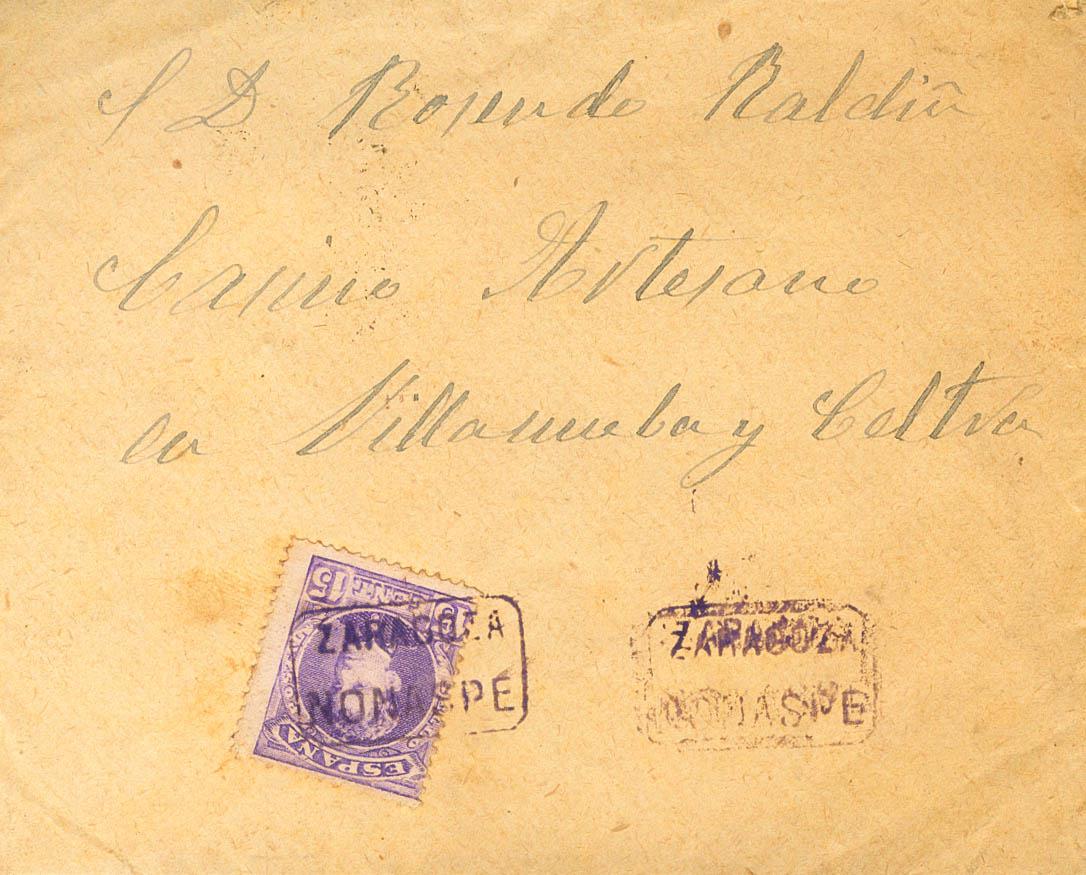 S D Rosendo Raldiñ
Casino Artesano
en Villanueba y Celtru
15 CENT. 15
ESPAÑA
ZARAGOZA
NONASPE
ZARAGOZA
NONASPE